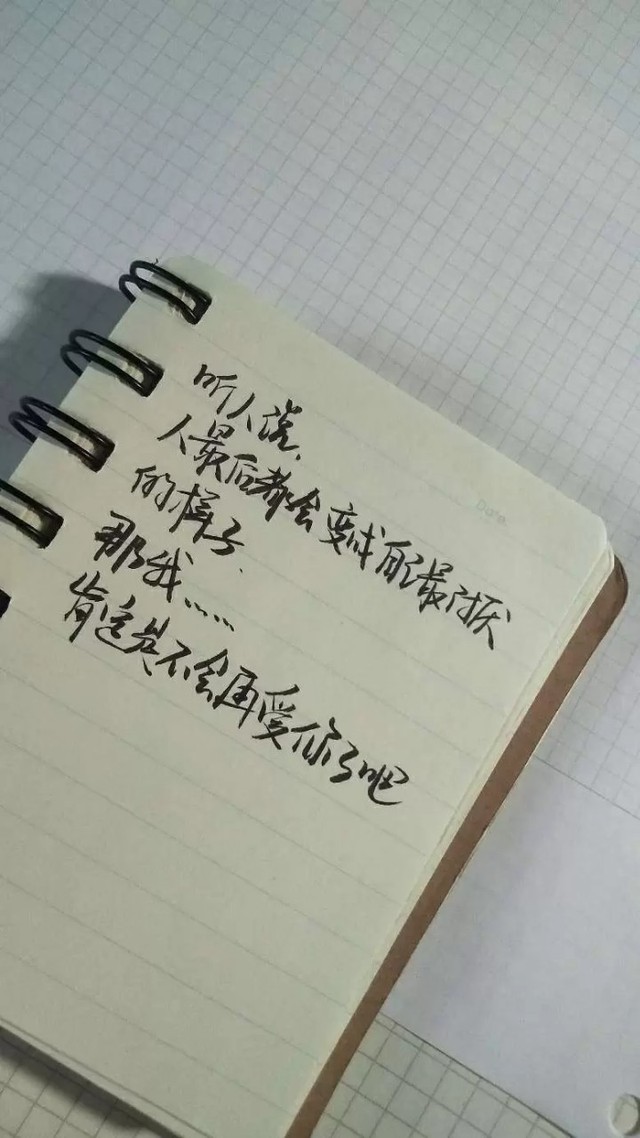 听人说,
人最后都会变成自己最讨厌
的样子、
那我……
肯定是不会再爱你了吧
Date